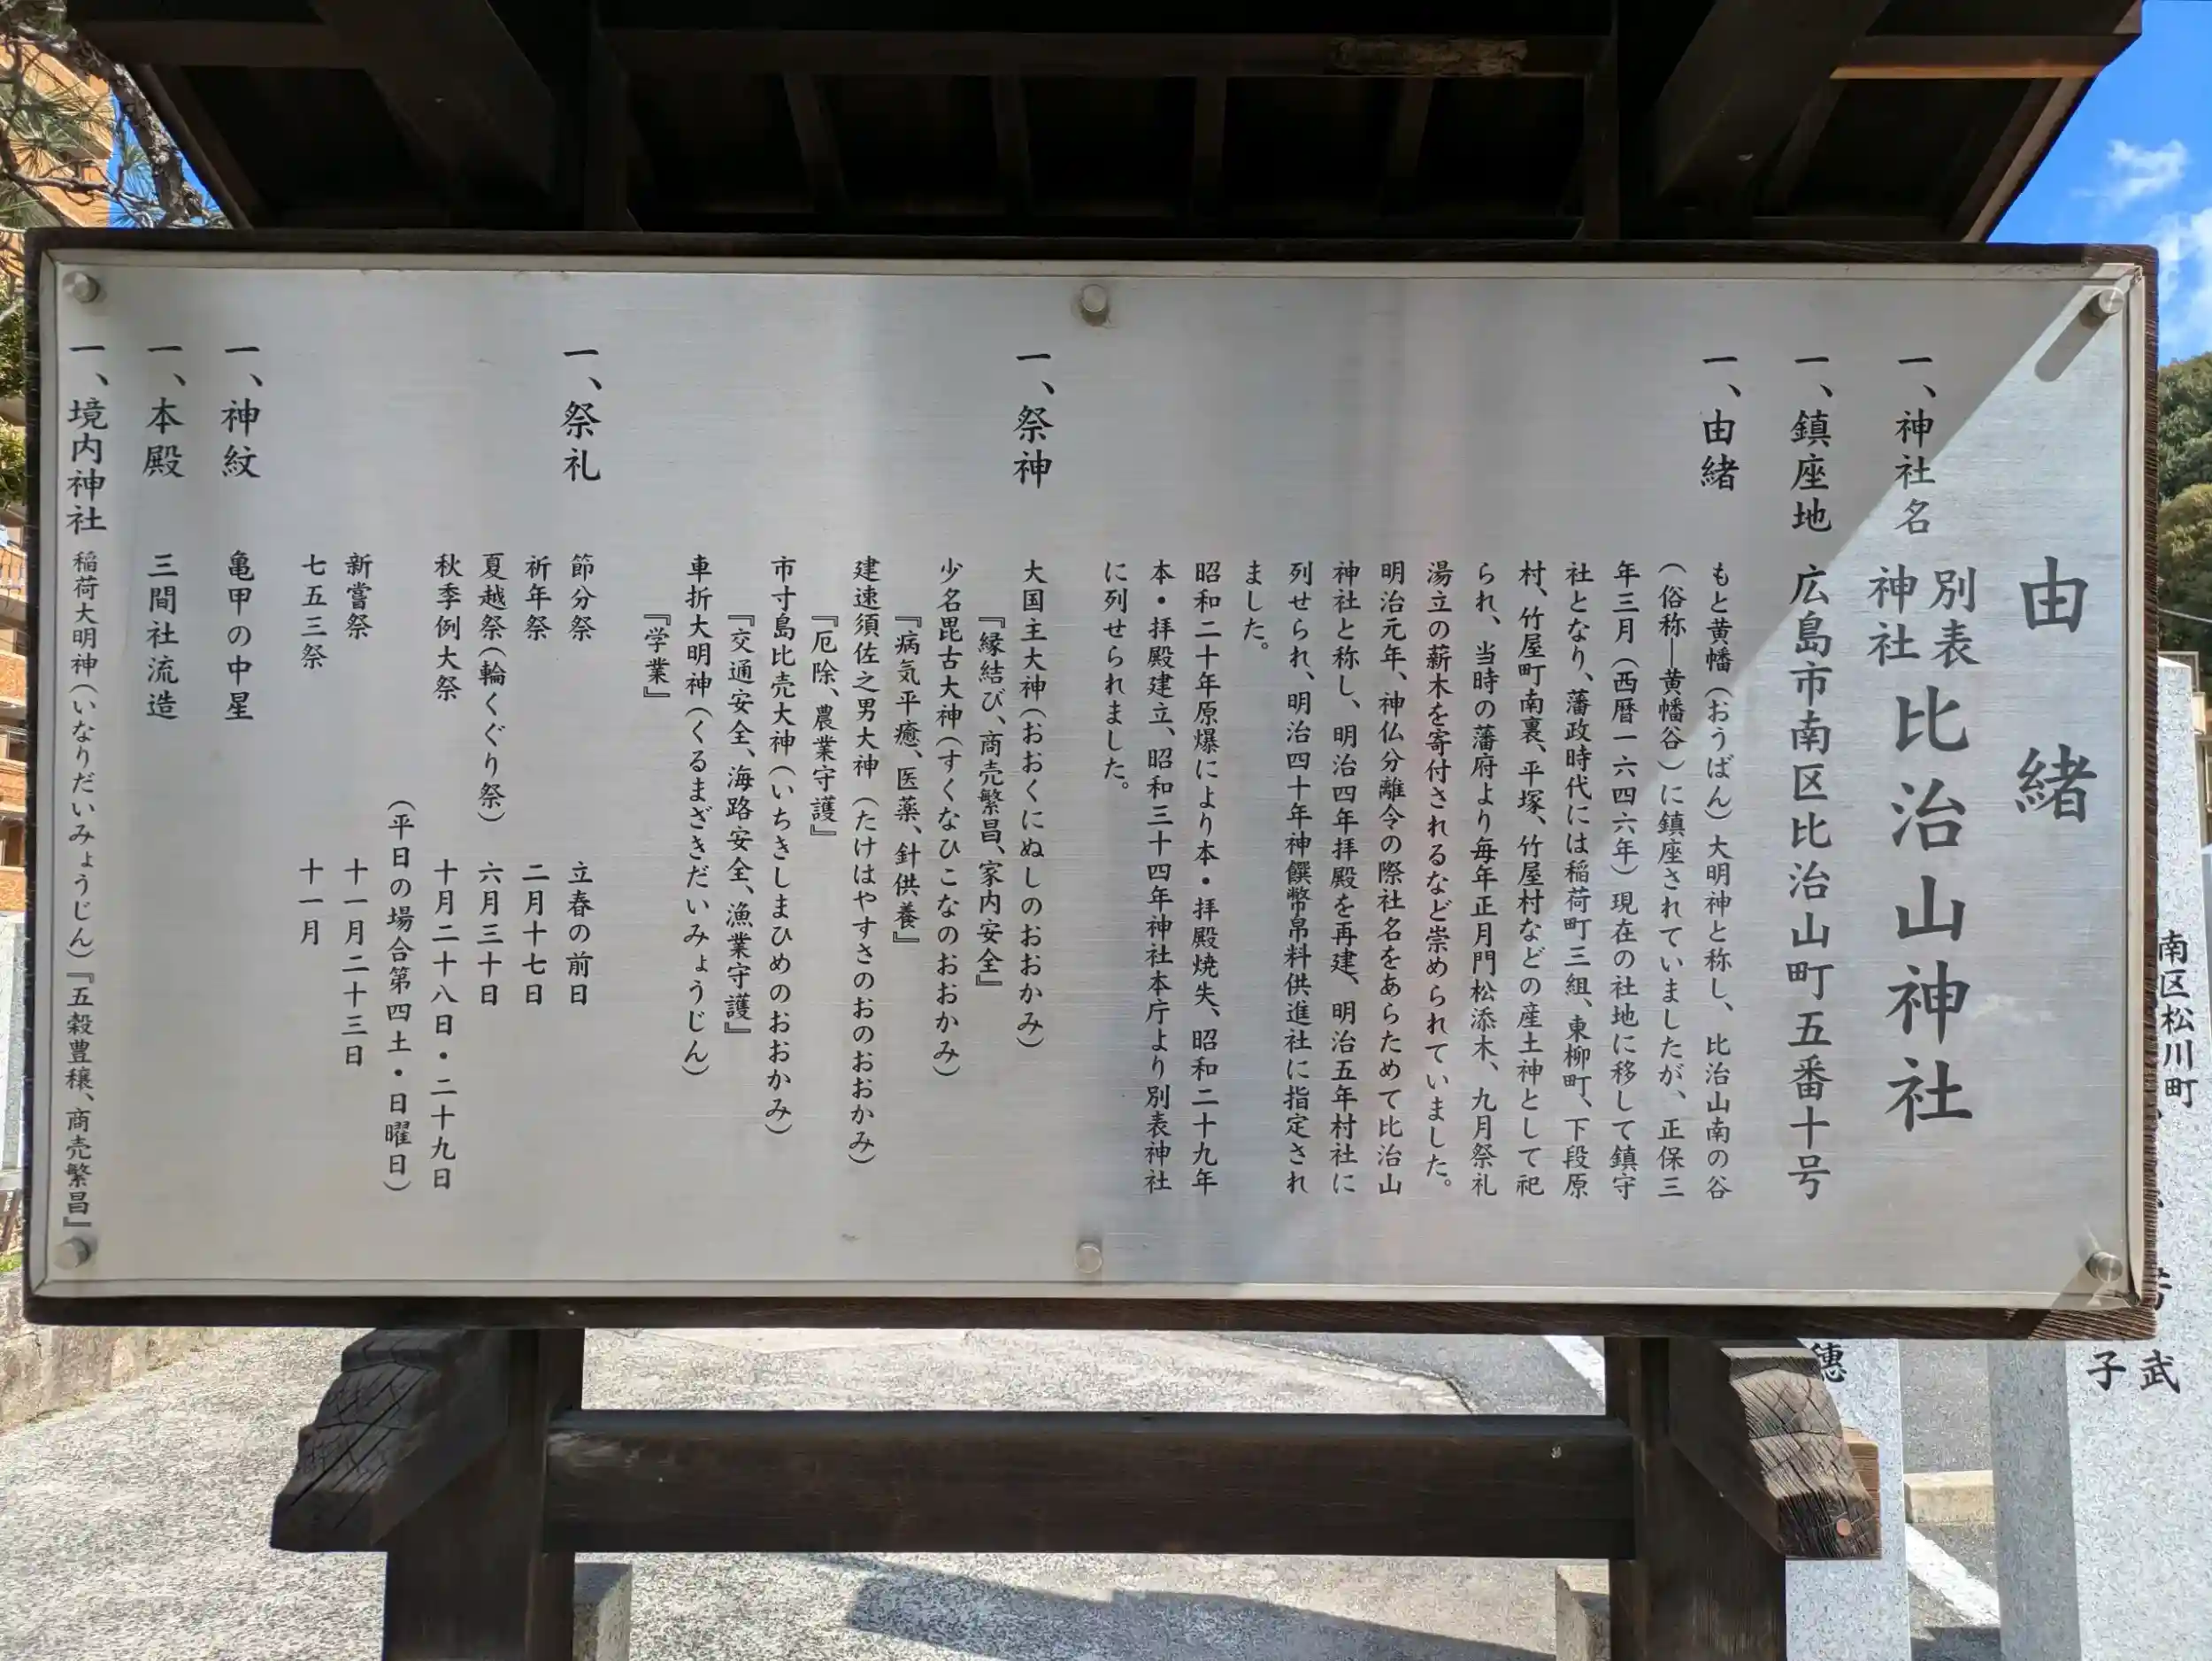 由緒
一、神社名 別表神社 比治山神社
一、鎮座地 広島市南区比治山町五番十号
一、由緒 もと黄幡（おうばん）大明神と称し、比治山南の谷
（俗称―黄幡谷）に鎮座されていましたが、正保三
年三月（西暦一六四六年）現在の社地に移して鎮守
社となり、藩政時代には稲荷町三組、東柳町、下段原
村、竹屋町南裏、平塚、竹屋村などの産土神として祀
られ、当時の藩府より毎年正月門松添木、九月祭礼
湯立の薪木を寄付されるなど崇められていました。
明治元年、神仏分離令の際社名をあらためて比治山
神社と称し、明治四年拝殿を再建、明治五年村社に
列せられ、明治四十年神饌幣帛料供進社に指定され
ました。
昭和二十年原爆により本・拝殿焼失、昭和二十九年
本・拝殿建立、昭和三十四年神社本庁より別表神社
に列せられました。
一、祭神 大国主大神（おおくにぬしのおおかみ）
『縁結び、商売繁昌、家内安全』
少名毘古大神（すくなひこなのおおかみ）
『病気平癒、医薬、針供養』
建速須佐之男大神（たけはやすさのおのおおかみ）
『厄除、農業守護』
市寸島比売大神（いちきしまひめのおおかみ）
『交通安全、海路安全、漁業守護』
車折大明神（くるまざきだいみょうじん）
『学業』
一、祭礼 節分祭 立春の前日
祈年祭 二月十七日
夏越祭（輪くぐり祭） 六月三十日
秋季例大祭 十月二十八日・二十九日
（平日の場合第四土・日曜日）
新嘗祭 十一月二十三日
七五三祭 十一月
一、神紋 亀甲の中星
一、本殿 三間社流造
一、境内神社 稲荷大明神（いなりだいみょうじん）『五穀豊穣、商売繁昌』
南区松川町
武
子
穂